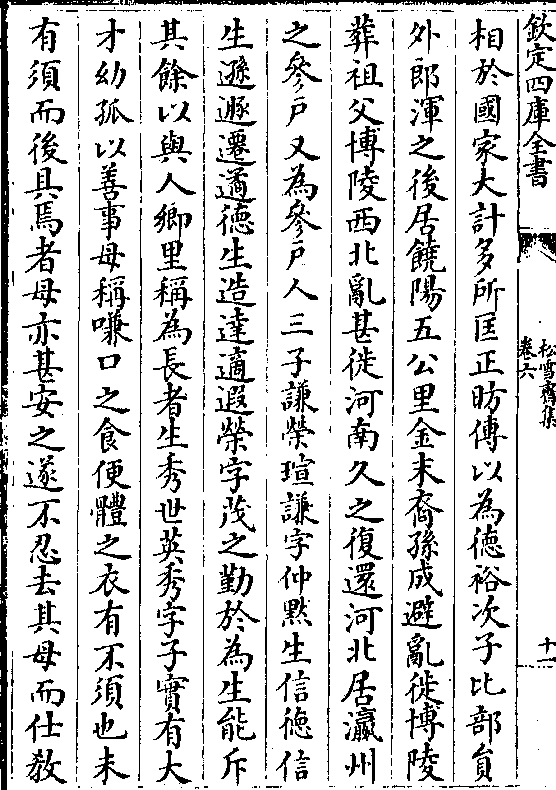 欽定四庫全書
松雪齋集
卷六
十一
相於國家大計多所匡正昉傳以為德裕次子比部員
外郎渾之後居饒陽五公里金末裔孫成避亂徙博陵
葬祖父博陵西北亂甚徙河南久之復還河北居瀛州
之參戸又為參戸人三子謙榮瑄謙字仲黙生信德信
生遜遯遷遹德生造達適遐榮字茂之勤於為生能斥
其餘以與人鄉里稱為長者生秀世英秀字子實有大
才幼孤以善事母稱嗛口之食便體之衣有不須也未
有須而後具焉者母亦甚安之遂不忍去其母而仕教